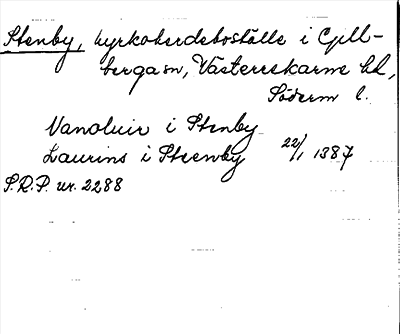 Stenby, kyrkoherdeboställe i Gill-
berga sn, Västerrekarne hd,
Söderm l.
Vanoluir i Stenby
Laurins i Steenby 22/1 1387
S.R.P. nr. 2288